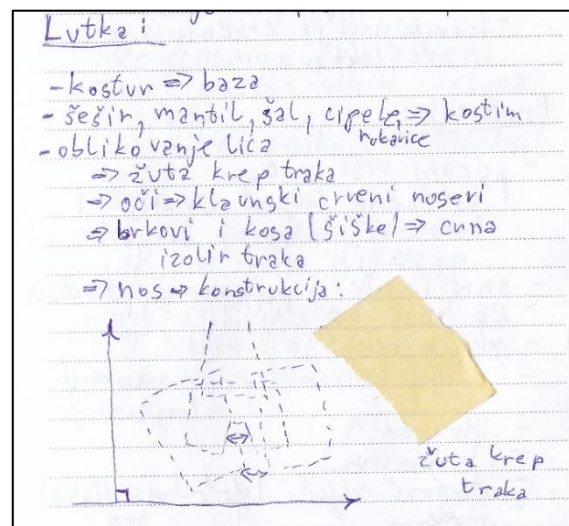 Lutka:
- kostur => baza
- šešir, mantil, šal, cipele, => kostim
rokavice
- oblikovanje lica
=> žuta krep traka
=> oči => klaunski crveni noseri
=> brkovi i kosa (šiške) => crna
izolir traka
=> nos => konstrukcija:
žuta krep
traka